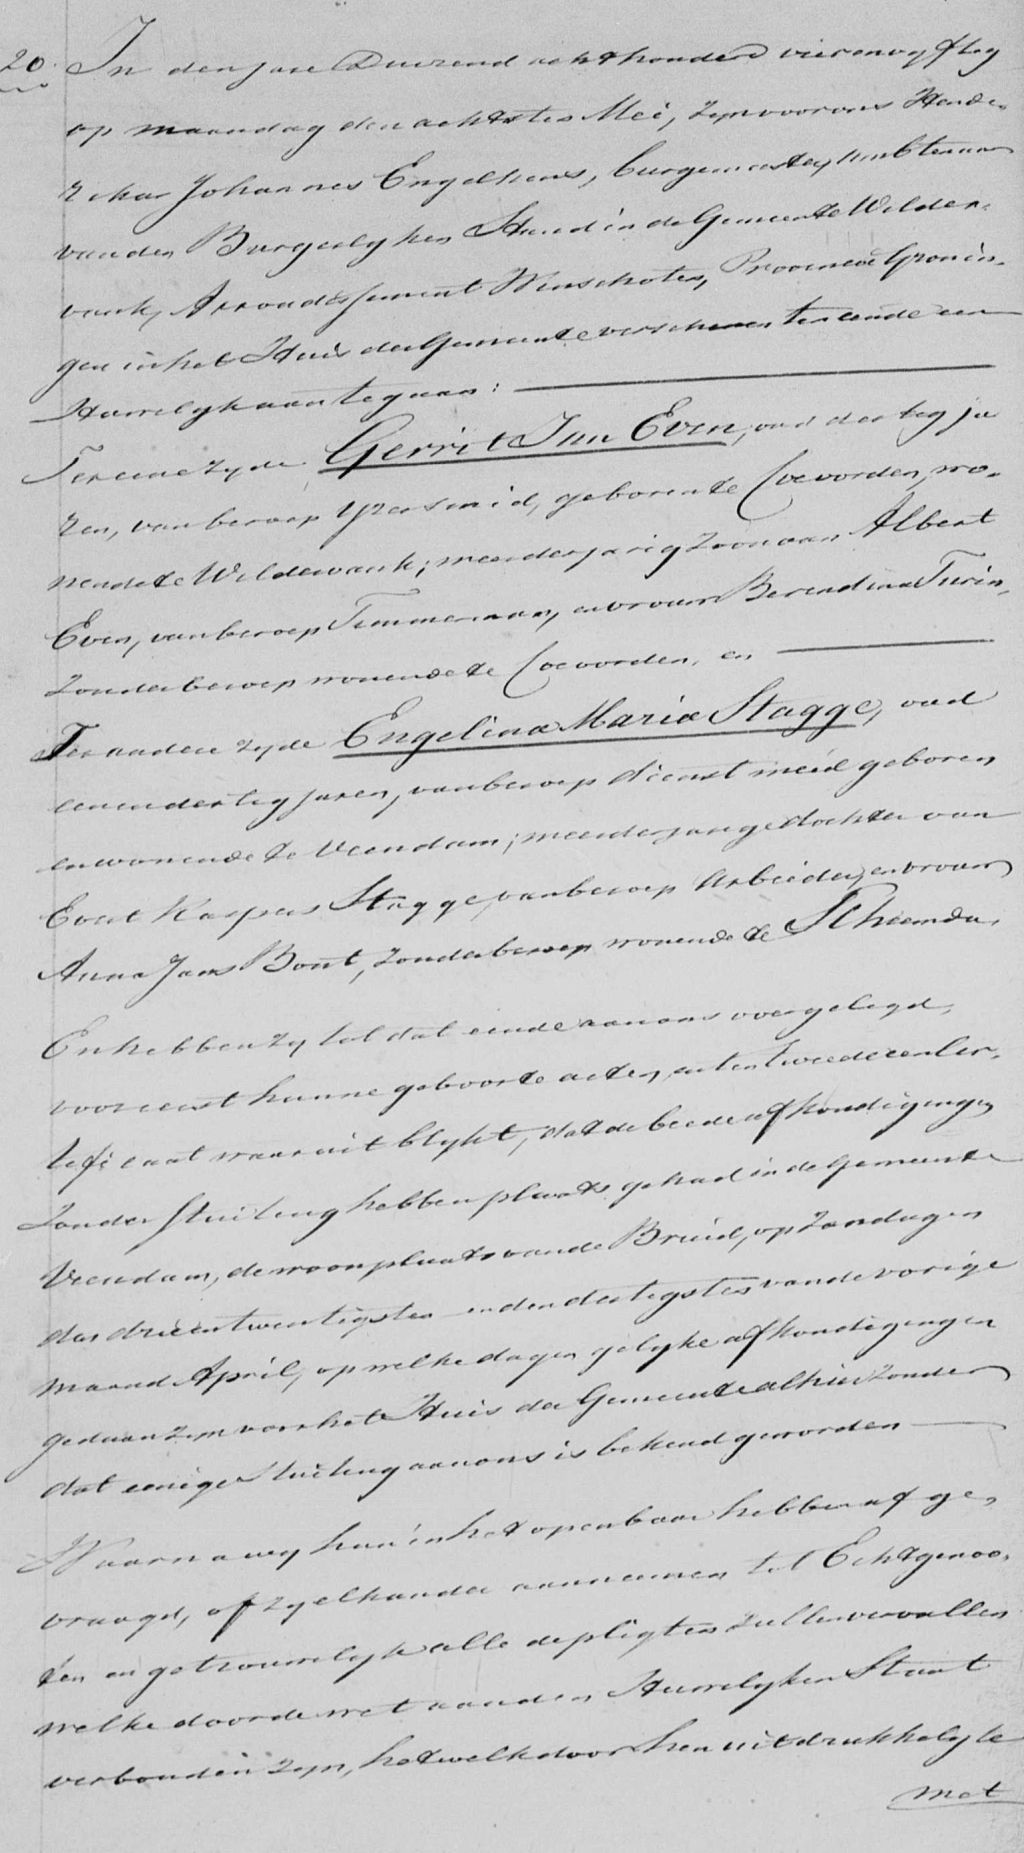 20. In den jare Duizend achthonderd vierenvyftig
op maandag den achtsten Mei, zyn voor ons Hende-
rikus Johannes Engelkens, burgemeester, ambtenaar
van den Burgerlyken Stand in de Gemeente Wilder-
vank, Arrondissement Winschoten, Provincie Gronin-
gen in het Huis der Gemeente verschenen ten einde een
Huwelyk aan te gaan:
Ter eene zyde Gerrit Jan Even, oud dertig ja
ren, van beroep Yzersmid, geboren te Coevorden, wo-
nende te Wildervank; meerderjarig zoon van Albert
Even, van beroep Timmerman, en vrouw Berendina Turin,
zonder beroep wonende te Coevorden, en
Ter andere zyde Engelina Maria Stagge, oud
eenendertig jaren, van beroep dienstmeid geboren
en wonende te Veendam; meerderjarige dochter van
Evert Kaspers Stagge, van beroep Arbeider, en vrouw
Anna Jans Bont, zonder beroep wonende te Scheemda.
En hebben zy tot dat einde aan ons overgelegd,
vooreerst hunne geboorte acten, en ten tweede een Cer-
tificaat waaruit blykt, dat de beide afkondigingen
zonder stuiting hebben plaats gehad in de Gemeente
Veendam, de woonplaats van de Bruid, op Zondagen
den drieentwintigsten en den dertigsten van de vorige
maand April, op welke dagen gelyke afkondigingen
gedaan zyn voor het Huis der Gemeente alhier zonder
dat eenige stuiting aan ons is bekend geworden
Waarna wy hun in het openbaar hebben afge-
vraagd, of zy elkander aannemen tot Echtgenoo-
ten en getrouwelyk alle de pligten zullen vervullen
welke door de wet aan den Huwelyken Staat
verbonden zyn, hetwelk door hen uitdrukkelyk
met